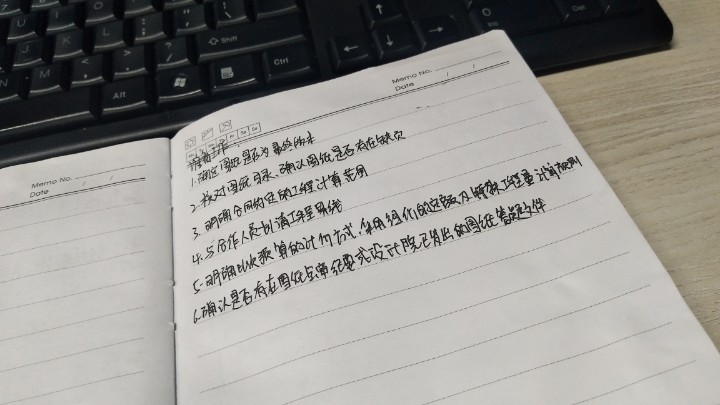 Shift
Alt
Ctrl
Del
Memo No.
Date / /
Memo No.
Date / /
准备工作:
1.确定图纸是否为最终版本
2.核对图纸目录、确认图纸是否有存在缺页
3.明确合同约定的工程计算范围
4.与合作人员划清工程界线
5.明确此次预算的计价方式,采用组价的定额及解释工程量计算规则
6.确认是否存在图纸会审纪要或设计院已发出的图纸答疑文件